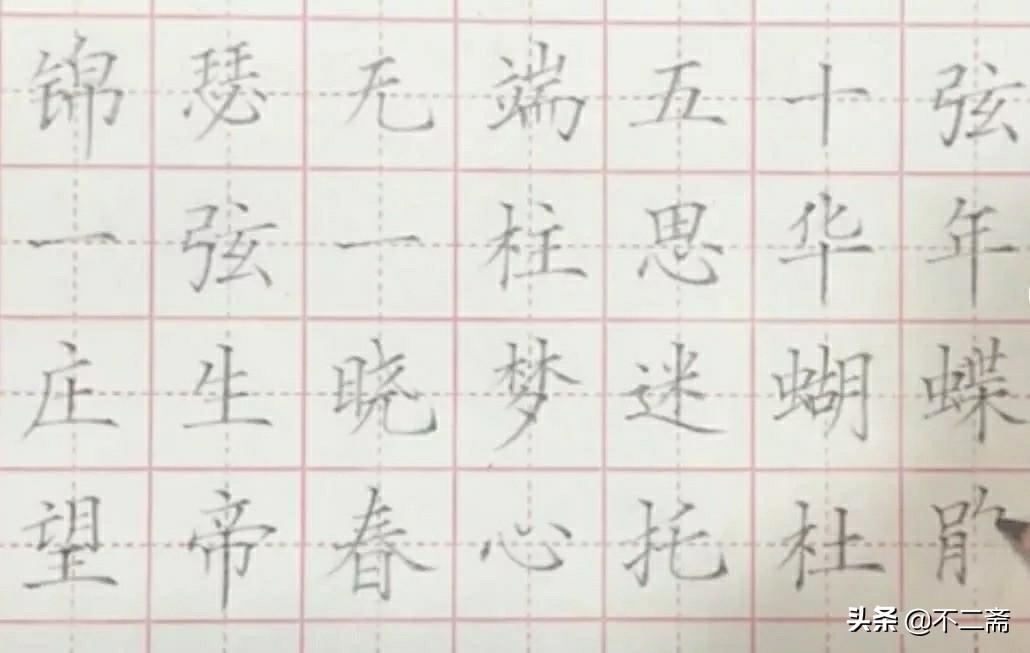 锦瑟无端五十弦
一弦一柱思华年
庄生晓梦迷蝴蝶
望帝春心托杜
头条 @不二斋